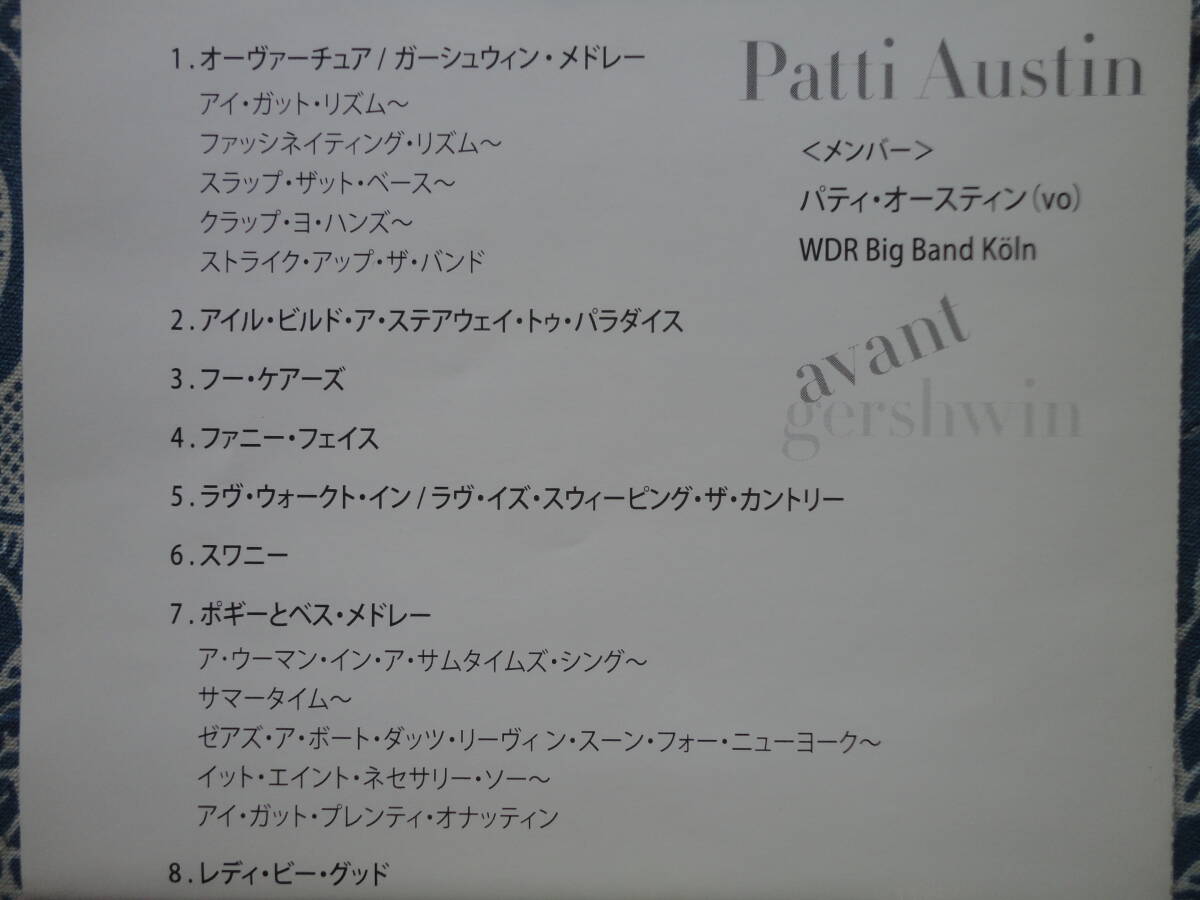 1.オーヴァーチュア / ガーシュウィン・メドレー
アイ・ガット・リズム～
ファッシネイティング・リズム～
スラップ・ザット・ベース～
クラップ・ヨ・ハンズ～
ストライク・アップ・ザ・バンド
2.アイル・ビルド・ア・ステアウェイ・トゥ・パラダイス
3.フー・ケアーズ
4.ファニー・フェイス
5.ラヴ・ウォークト・イン / ラヴ・イズ・スウィーピング・ザ・カントリー
6.スワニー
7.ポギーとベス・メドレー
ア・ウーマン・イン・ア・サムタイムズ・シング～
サマータイム～
ゼアズ・ア・ボート・ダッツ・リーヴィン・スーン・フォー・ニューヨーク～
イット・エイント・ネセサリー・ソー～
アイ・ガット・プレンティ・オナッティン
8.レディ・ビー・グッド
Patti Austin
＜メンバー＞
パティ・オースティン(vo)
WDR Big Band Köln
avant
gershwin